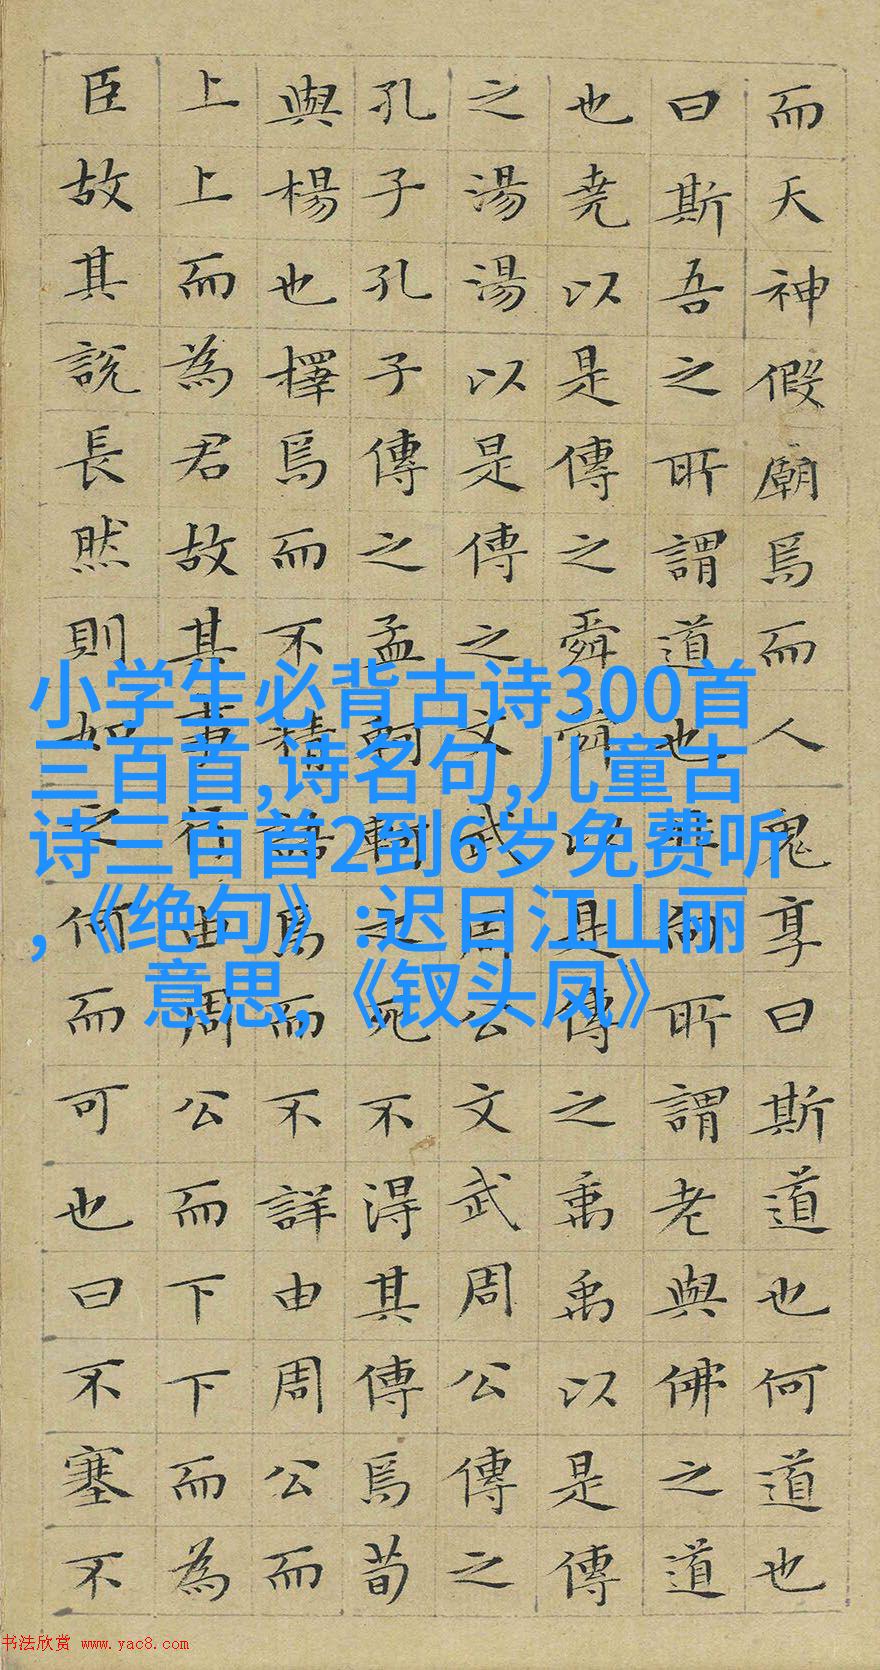 而天神假廟焉而人鬼享曰斯道也何道也
曰斯吾之所謂道也非向所謂老與佛之道
也堯以是傳之舜舜以是傳之禹禹以是傳
之湯湯以是傳之文武周公文武周公傳之
孔子孔子傳之孟軻軻之死不得其傳焉荀
與楊也擇焉而不精語焉而不詳由周公而
上上而為君故其事行由周公而下下而為
臣故其說長然則如之何而可也曰不塞不
小学生必背古诗300首
三百首,诗名句,儿童古
诗三百首2到6岁免费听
,《绝句》:迟日江山丽
意思,《钗头凤》
书法欣赏 www.yac8.com